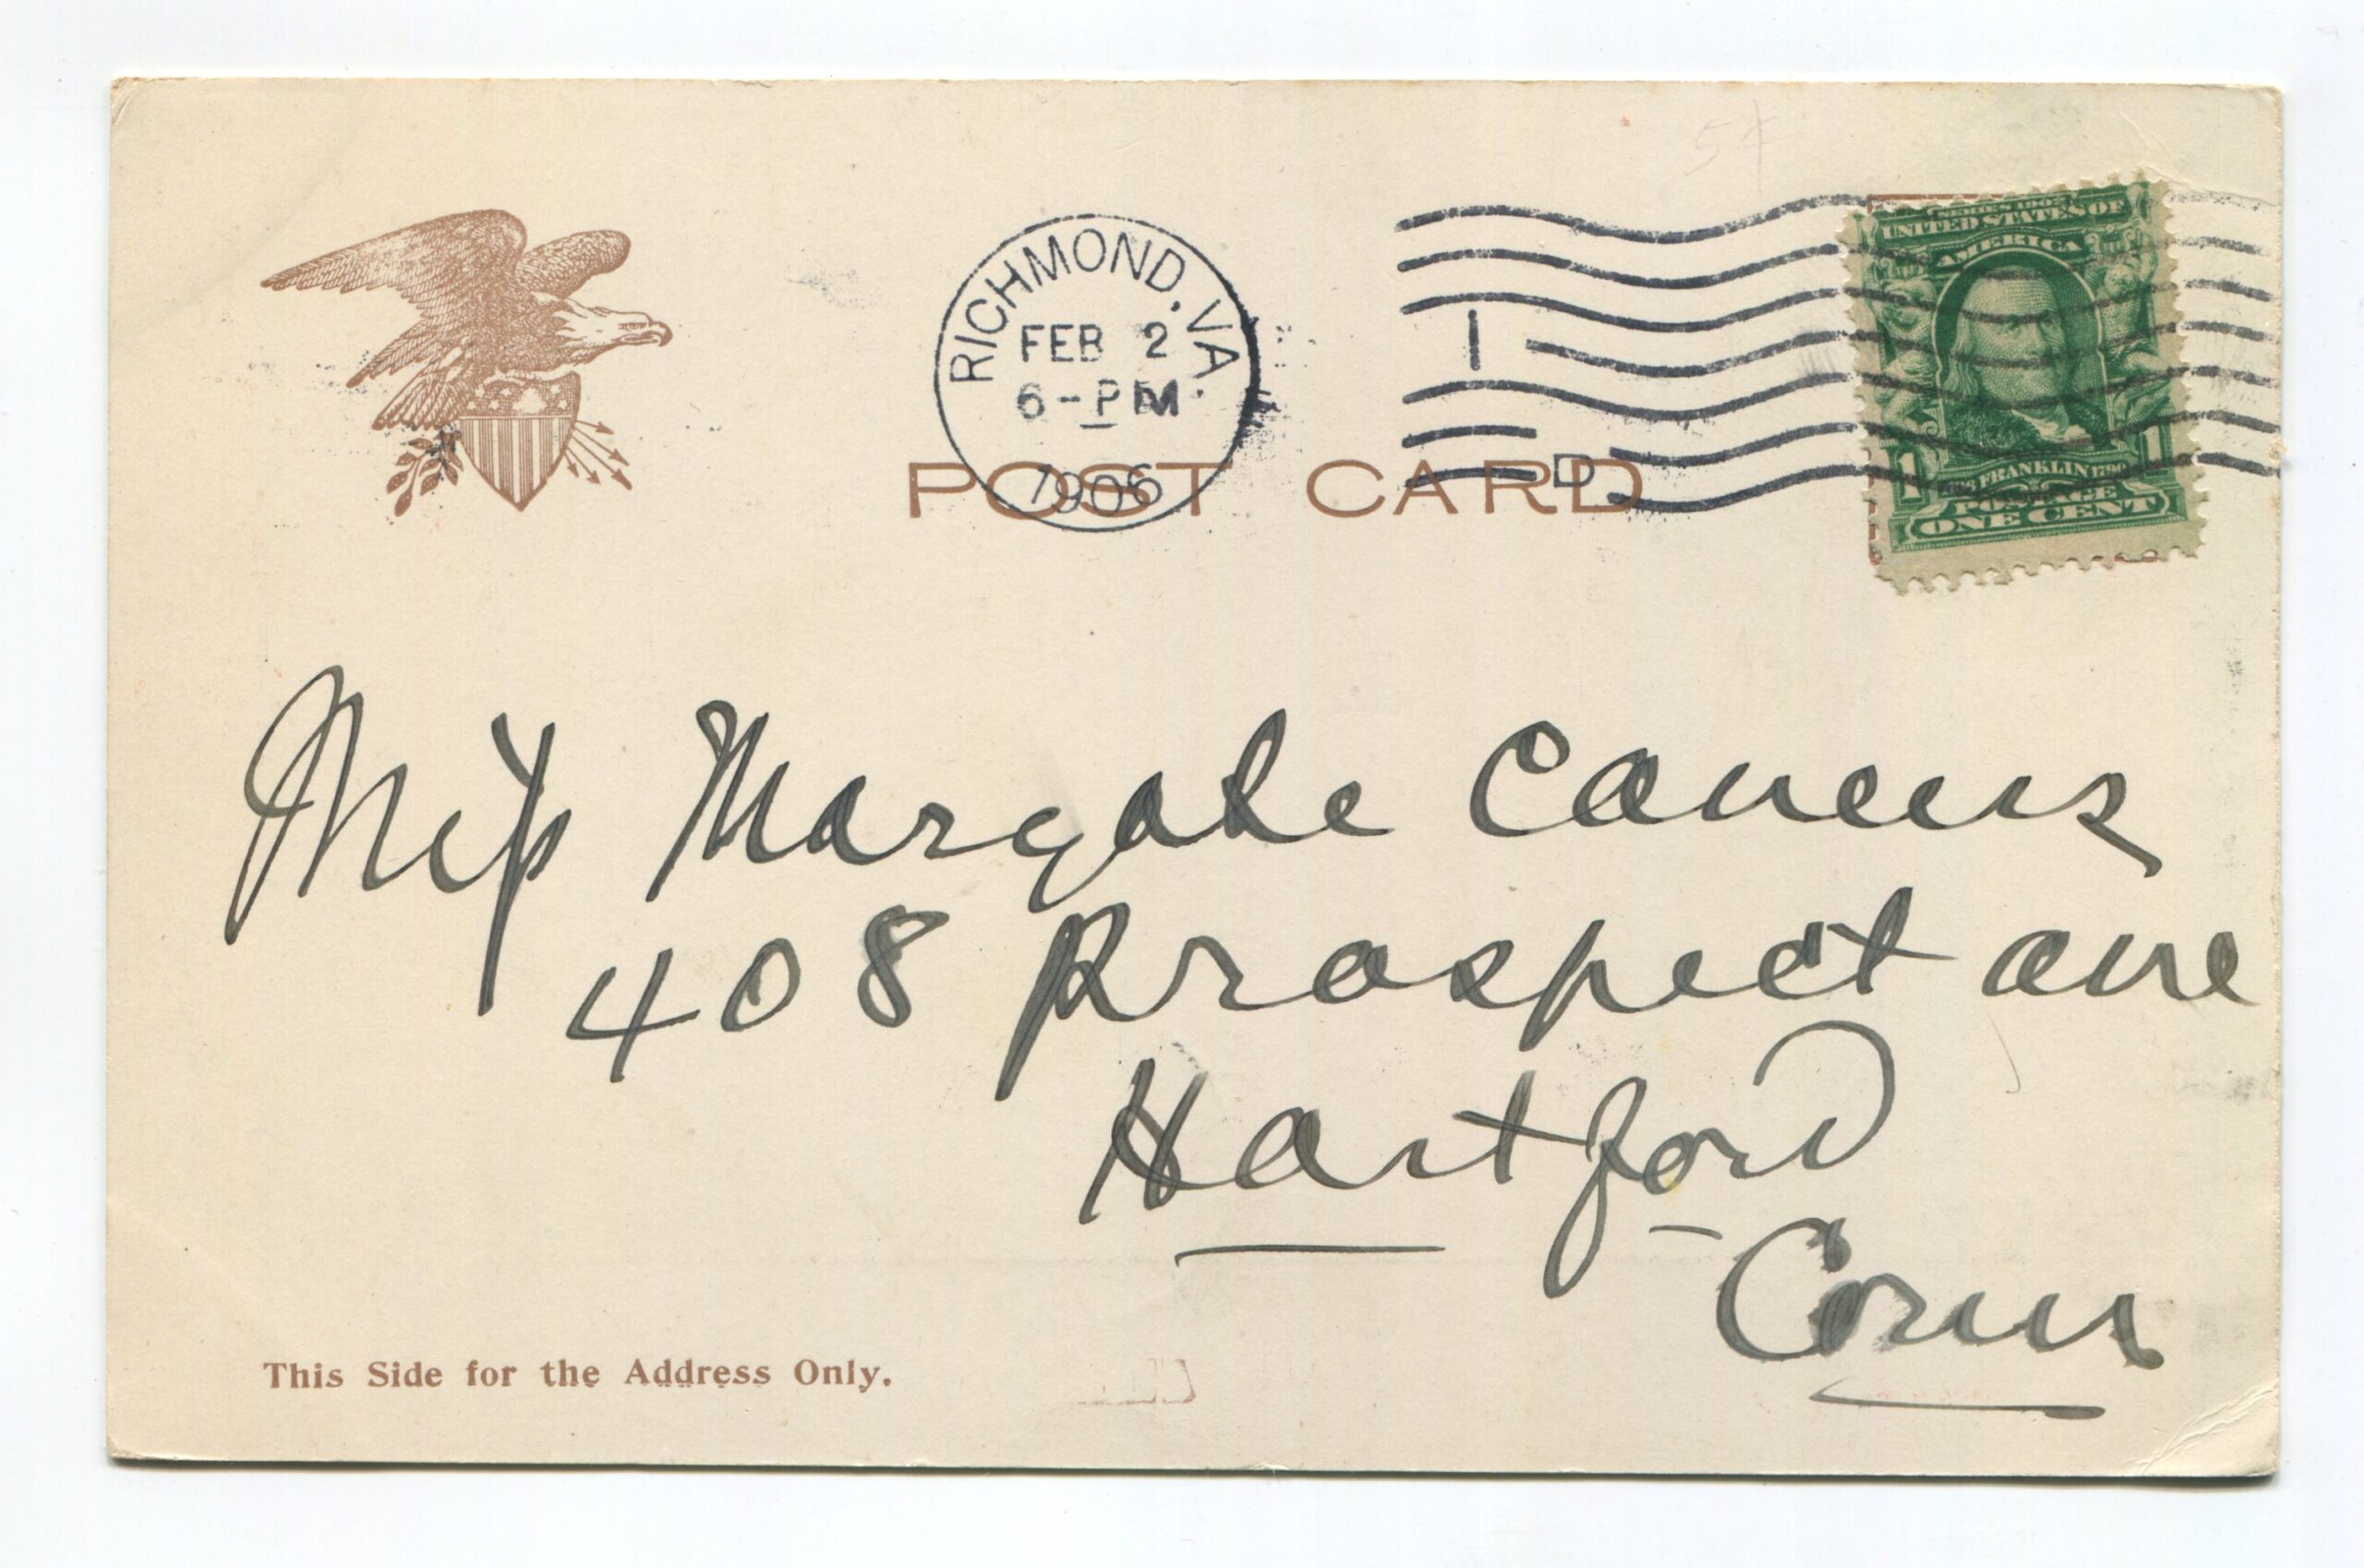 5¢
RICHMOND, VA.
FEB 2
6-PM
1906
1
D
SERIES 1902
UNITED STATES OF
AMERICA
FRANKLIN 1790
POSTAGE
1 1
ONE CENT
POST CARD
Miss
408 Prospect ave
Hartford
Conn
This Side for the Address Only.